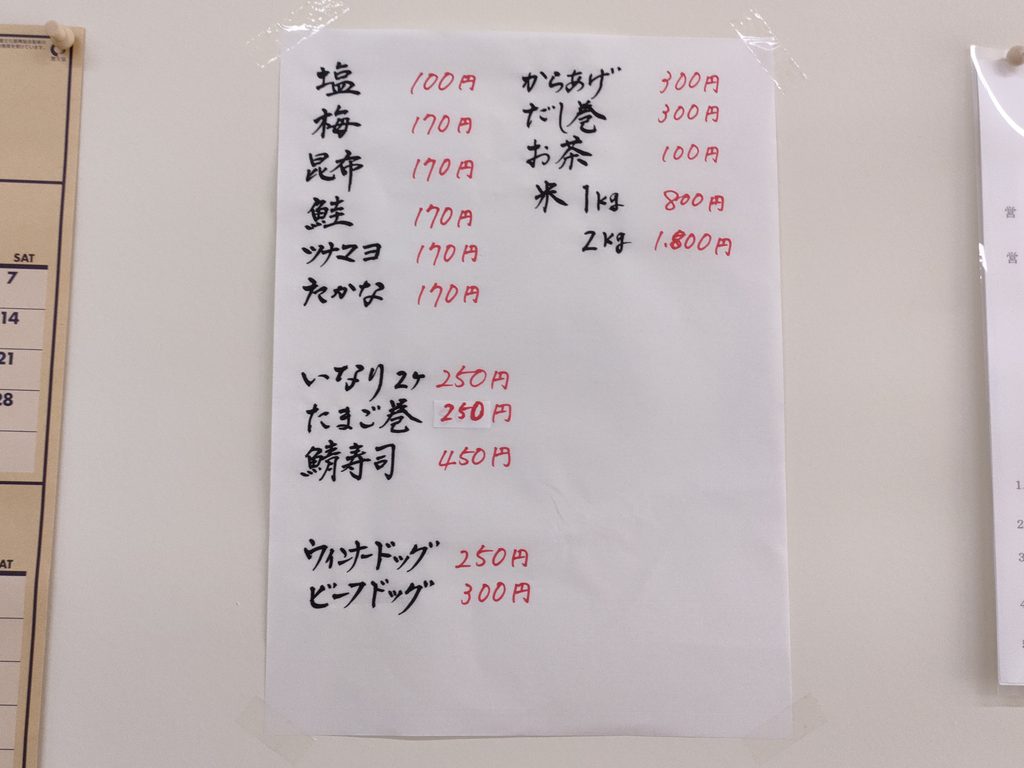 塩 100円
梅 170円
昆布 170円
鮭 170円
ツナマヨ 170円
たかな 170円
いなり 2ケ 250円
たまご巻 250円
鯖寿司 450円
ウィンナードッグ 250円
ビーフドッグ 300円
からあげ 300円
だし巻 300円
お茶 100円
米 1kg 800円
2kg 1.800円
SAT
7
14
21
28
AT
営
営
1.
2
3